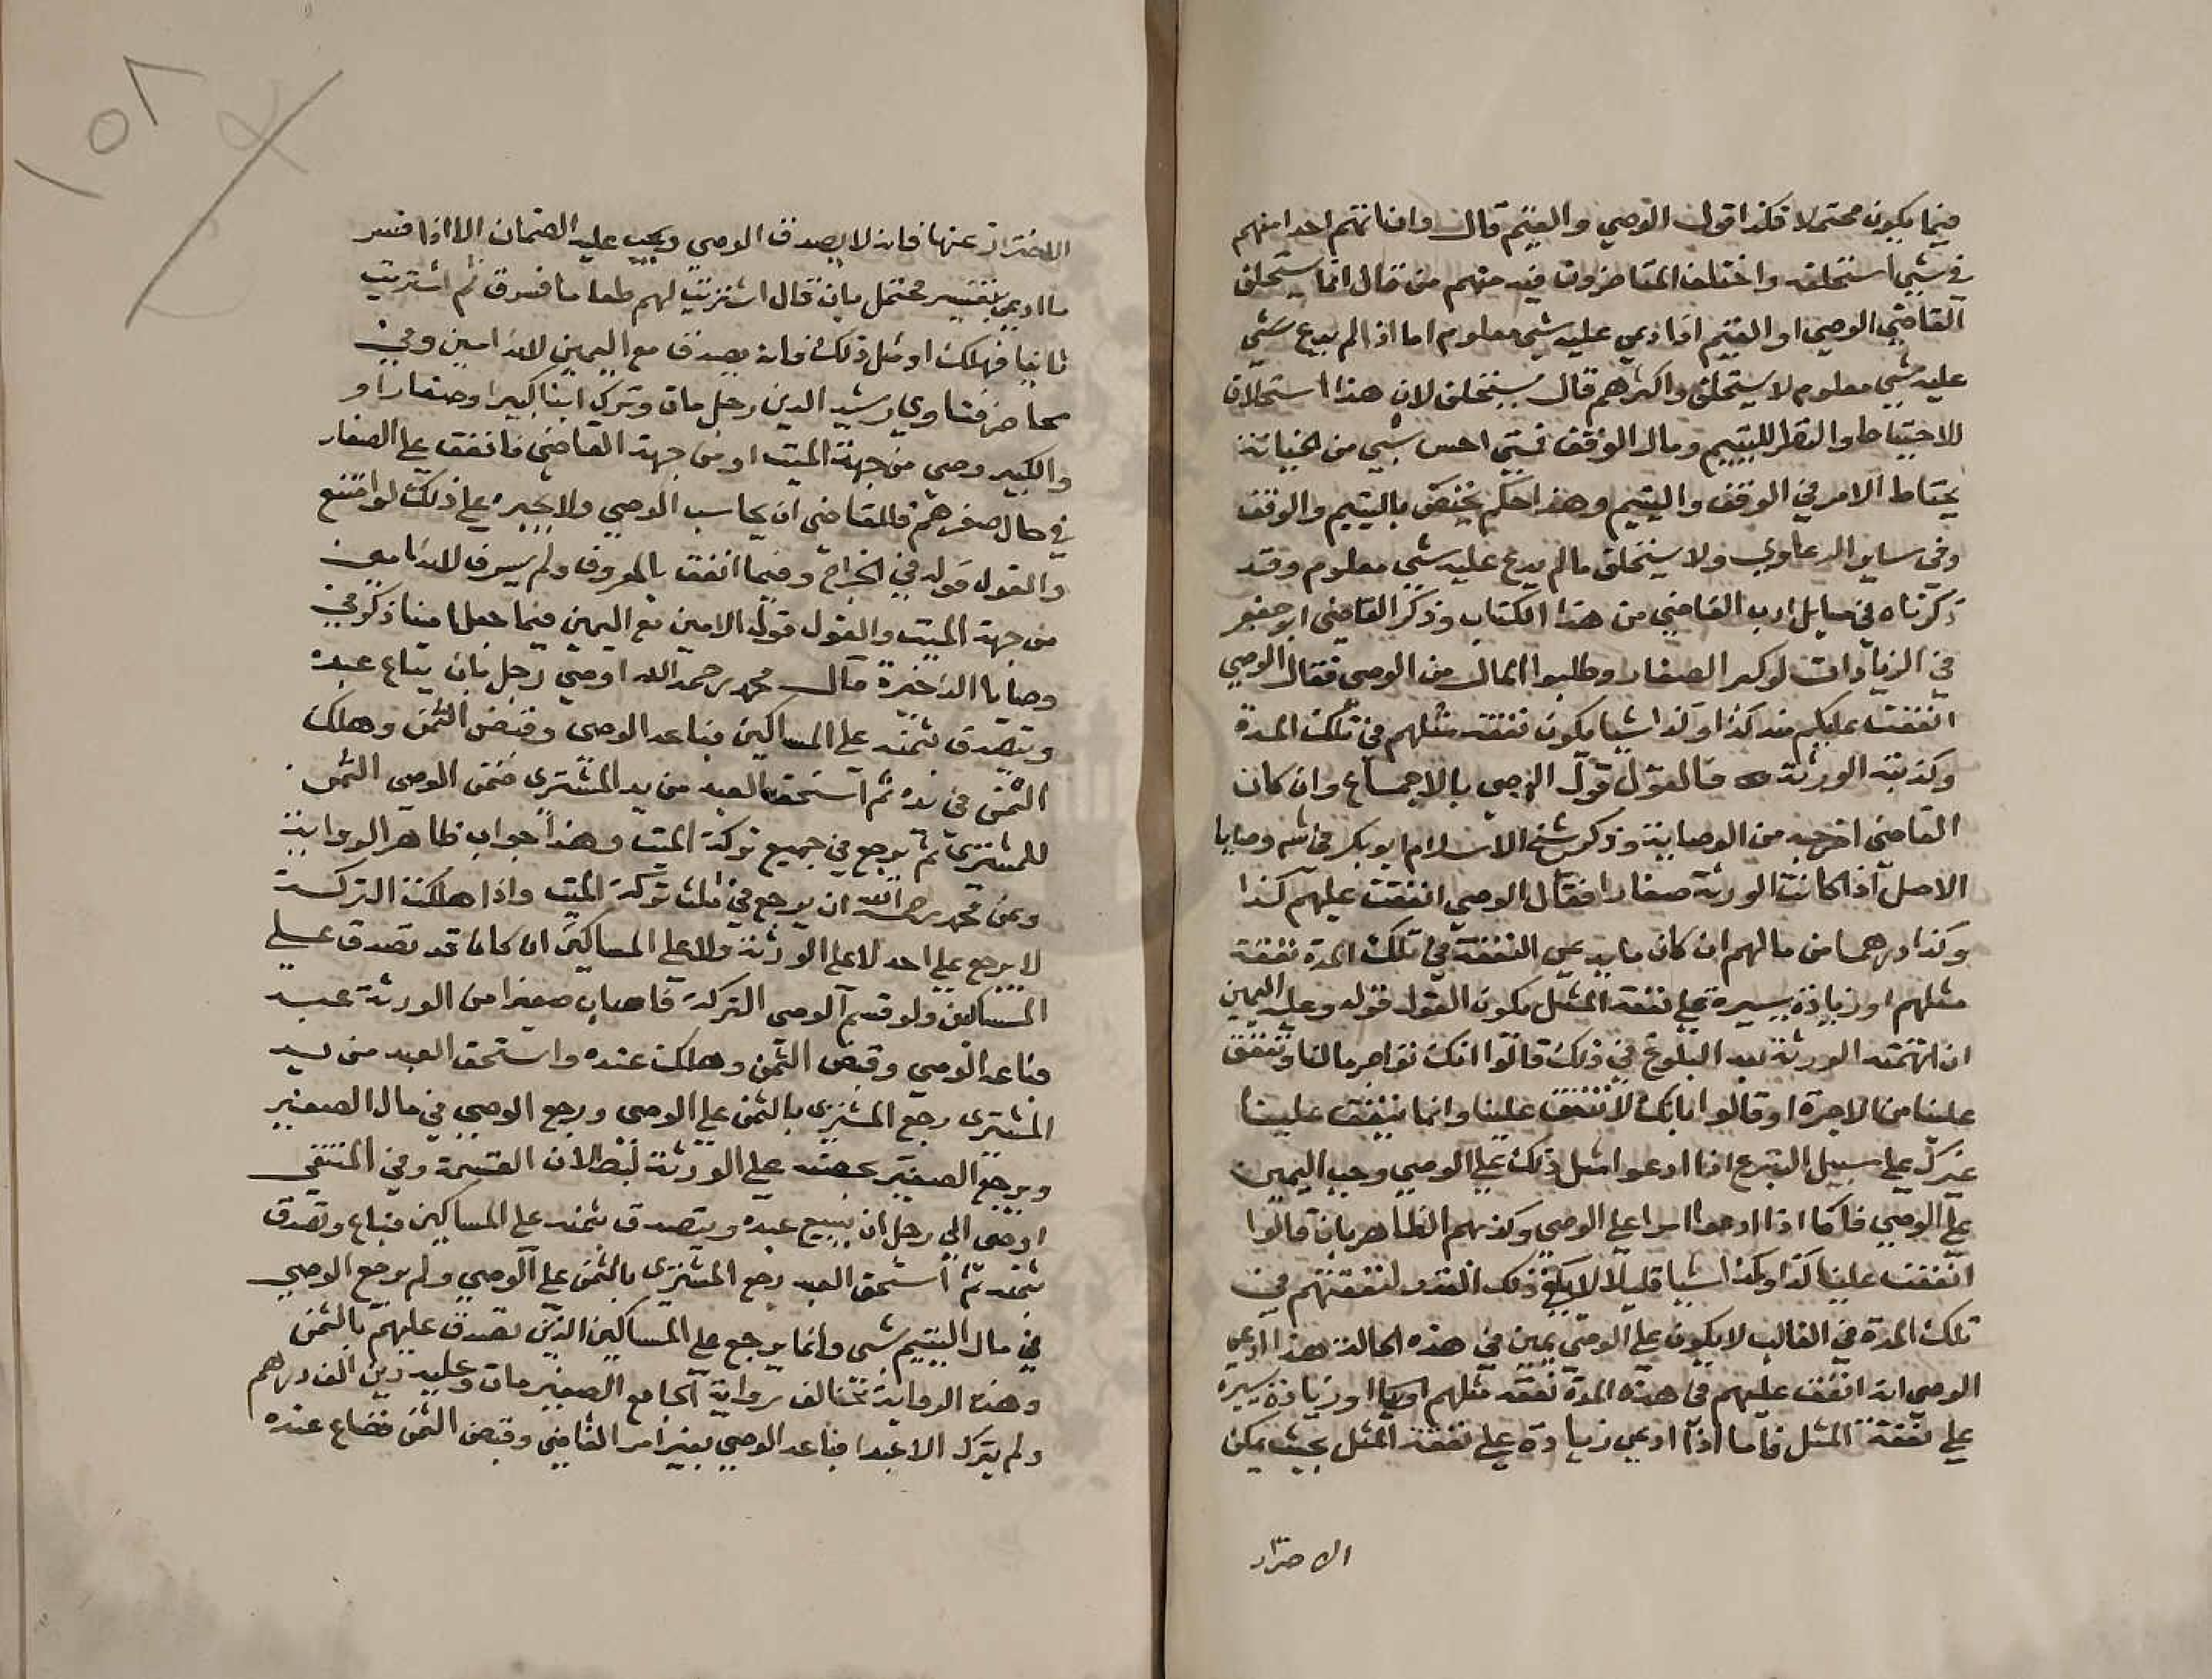 فيما يكون محتملا فكذا قول الوصي والقيم قال وافا نتهم احدا منهم
في شي استحلف واختلف المتاخرون فيه منهم من قال انما يستحلف
القاضي الوصي او القيم اذا ادعي عليه شي معلوم اما اذا لم يدع شي
عليه شي معلوم لا يستحلف واكثرهم قال يستحلف لان هذا استحلاف
للاحتياط والنظر لليتيم ومال الوقف فمتي احس بشي من الخيانة
يحتاط الامر في الوقف واليتيم وهذا حكم يختص باليتيم والوقف
وفي ساير الدعاوي ولا يستحلف مالم يدع عليه شي معلوم وقد
ذكرناه في مسايل ادب القاضي من هذا الكتاب وذكر القاضي ابو جعفر
في الزيادات لو كبر الصغار وطلبوا المال من الوصي فقال الوصي
انفقت عليكم منه كذا وكذا شيا يكون نفقة مثلهم في تلك المدة
وكذبته الورثة فالقول قول الوصي بالاجماع وان كان
القاضي اخرجه من الوصاية وذكر شيخ الاسلام ابو بكر في شر وصايا
الاصل اذا كانت الورثة صغارا فقال الوصي انفقت عليهم كذا
وكذا درهما من مالهم ان كان ما يدعي النفقة في تلك المدة نفقة
مثلهم او زيادة يسيرة علي نفقة المثل يكون القول قوله وعليه اليمين
ان اتهمته الورثة بعد البلوغ في ذلك قالوا انك تواجر مالنا وتنفق
علينا من الاجرة او قالوا ابانك لا تنفق علينا وانما ينفق علينا
غيرك علي سبيل التبرع اذا ادعوا مثل ذلك علي الوصي وجب اليمين
علي الوصي فاما اذا ادعوا امرا علي الوصي وكذبهم الظاهر بان قالوا
انفقت علينا كذا وكذا شيا قليلا لا يكفي ذلك القدر لنفقتهم في
تلك المدة في الغالب لا يكون علي الوصي يمين في هذه الحالة هذا اذا ادعي
الوصي انه انفق عليهم في هذه المدة نفقة مثلهم او زيادة يسيرة
علي نفقة المثل فاما اذا ادعي زيادة علي نفقة المثل بحيث يمكن
الاحتراز
الاحتراز عنها فانه لا يصدق الوصي ويجب عليه الضمان الا اذا فسر
ما ادعي بتفسير محتمل بان قال اشتريت لهم طعاما فسرق ثم اشتريت
ثانيا فهلك او مثل ذلك فانه يصدق مع اليمين لانه امين وفي
محاضر فتاوي رشيد الدين رجل مات وترك ابنا كبيرا وصغارا و
والكبير وصي من جهة الميت او من جهة القاضي فانفق علي الصغار
في حال صغرهم فالقاضي ان يحاسب الوصي ولا يجبره علي ذلك لو امتنع
والقول قوله في الخراج وفيما انفق بالمعروف ولم يسرف لانه امين
من جهة الميت والقول قول الامين مع اليمين فيما جعل امينا ذكر في
وصايا الذخيرة قال محمد رحمه الله اوصي رجل بان يباع عبده
ويتصدق بثمنه علي المساكين فباعه الوصي وقبض الثمن وهلك
الثمن في يده ثم استحق العبد من يد المشتري ضمن الوصي الثمن
للمشتري ثم يرجع في جميع تركة الميت وهذا جواب ظاهر الرواية
وعن محمد رحمه الله ان يرجع في ثلث تركة الميت واذا هلكت التركة
لا يرجع علي احد لا علي الورثة ولا علي المساكين ان كان قد تصدق علي
المساكين ولو قسم الوصي التركة فاصاب صغيرا من الورثة عبد
فباعه الوصي وقبض الثمن وهلك عنده واستحق العبد من يد
المشتري رجع المشتري بالثمن علي الوصي ورجع الوصي في مال الصغير
ويرجع الصغير بحصته علي الورثة لبطلان القسمة وفي المنتقي
اوصي الي رجل ان يبيع عبده ويتصدق بثمنه علي المساكين فباع وتصدق
بثمنه ثم استحق العبد رجع المشتري بالثمن علي الوصي ولم يرجع الوصي
في مال اليتيم بشي وانما يرجع علي المساكين الذين تصدق عليهم بالثمن
وهذه الرواية تخالف رواية الجامع الصغير مات وعليه دين الف درهم
ولم يترك الا عبدا فباعه الوصي بغير امر القاضي وقبض الثمن فضاع عنده